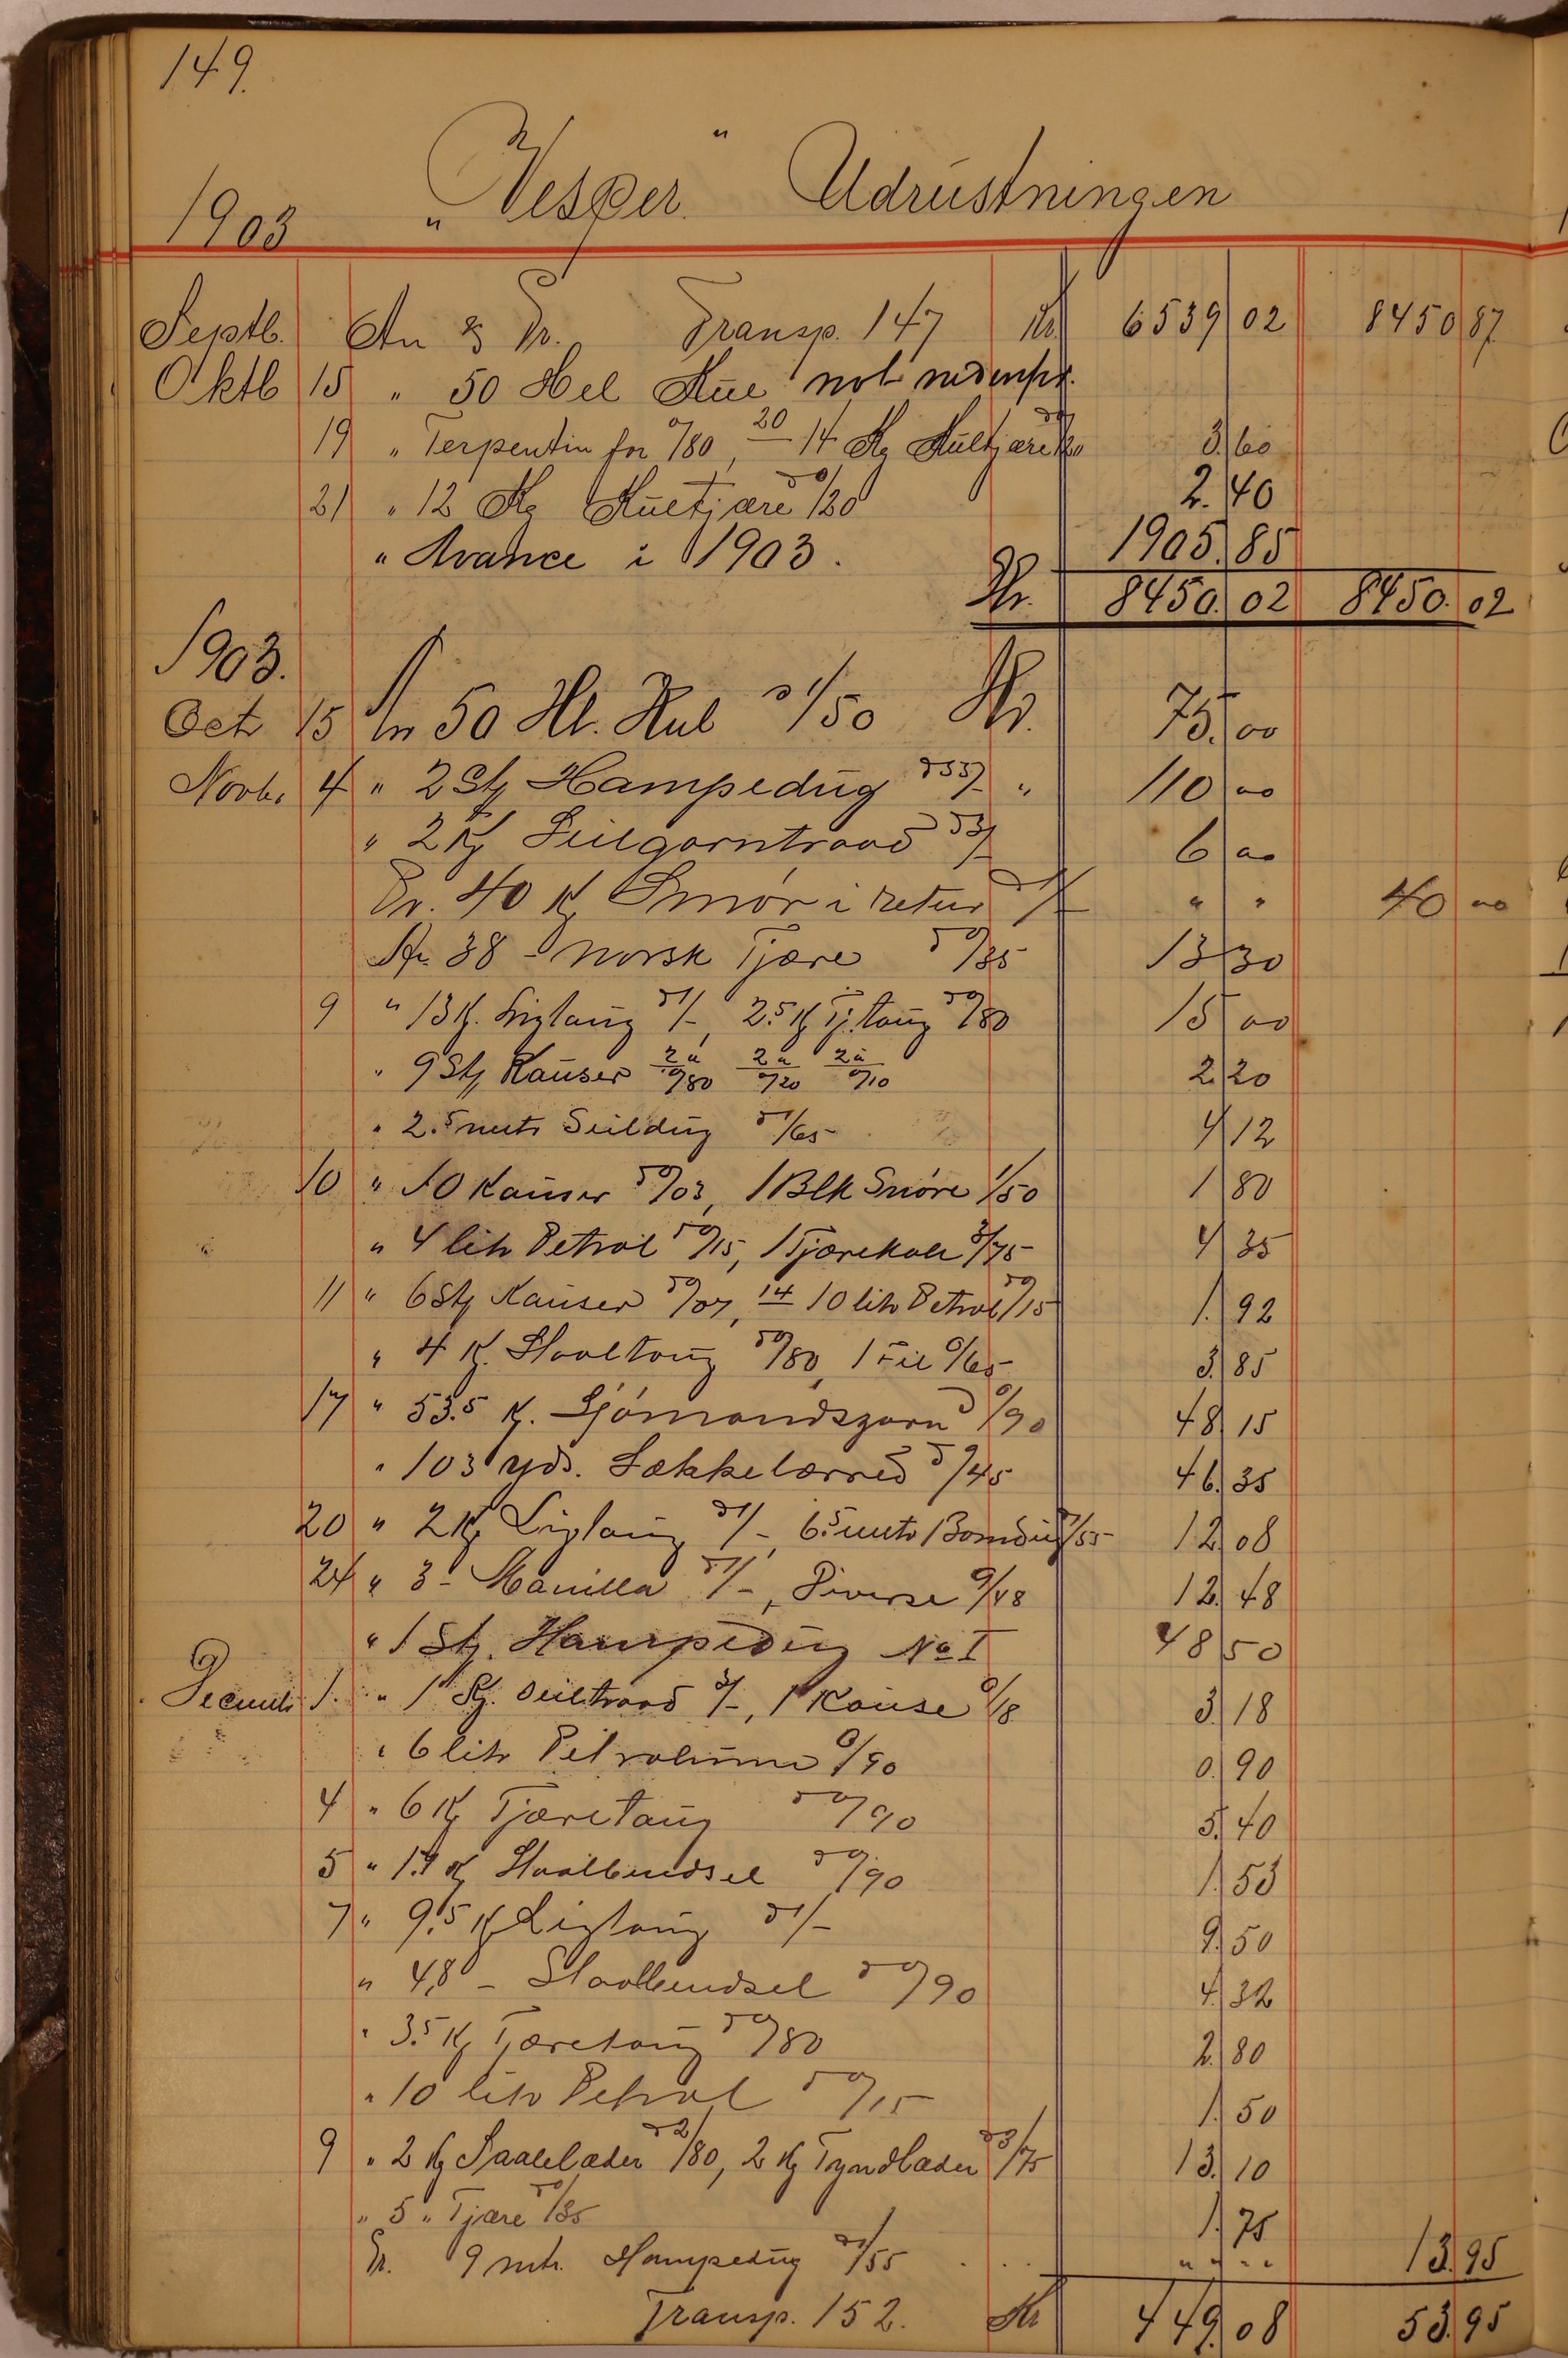 149.
"Vesper" Udrustningen
1903
Septb. An & Pr. Transp. 147 Kr. 6539 02 8450 87
Oktb 15 " 50 Hel Kul
19 " Terpentin for 0/80, 20 - 14 Kg Kultjære 3.60
21 " 12 Kg Kultjære à 0/20 2.40
" Avance i 1903. 1905.85
Kr. 8450.02 8450.02
1903.
Oct 15 An 50 Hl. Kul à 1/50 Kr. 75.00
Novbr 4 " 2 Stk Hampedug à 55/- " 110 00
" 2 Kg Seilgarntraad à 3/- 6 00
Pr. 40 K Smør i retur à 1/- " " 40 00
An 38 - norsk Tjære à 0/35 13 30
9 " 13 K. Ligtaug à 1/-, 2.5 K Tj.taug à 0/80 15 00
" 9 Stk Kauser 2 à 0/80 2 à 0/20 2 à 0/10 2.20
" 2.5 mtr Seildug à 1/65 4 12
10 " 10 Kauser à 0/03, 1 Blk Snøre 1/50 1 80
" 4 litr Petrol à 0/15, 1 Tjærekost 3/75 4 35
11 " 6 Stk Kauser à 0/07, 14 10 litr Petrol à 0/15 1.92
" 4 K. Staaltaug à 0/80, 1 Fil 0/65 3.85
17 " 53.5 K. Sjømandsgarn à 0/90 48 15
" 103 yds. Sækkelærred à 0/45 46.35
20 " 2 Kg Ligtaug à 1/-, 6.5 mtr Bomdug 1/55 12 08
24 " 3 - Manilla à 1/-, Diverse 9/48 12.48
" 1 Stk. Hampedug No I 48 50
Decembr 1. " 1 Kg. Seiltraad 3/-, 1 Kause 0/18 3.18
" 6 litr Petroleum 0/90 0.90
4 " 6 Kg Tjæretaug à 0/90 5.40
5 " 1.7 K Staalbendsel à 0/90 1.53
7 " 9.5 K Ligtaug à 1/- 9.50
" 4,8 - Staalbendsel à 0/90 4.32
" 3.5 Kg Tjæretaug à 0/80 2.80
" 10 litr Petrol à 0/15 1.50
9 " 2 Kg Saalelæder à 2/80, 2 Kg Tyndlæder à 3/75 13.10
" 5 " Tjære à 0/35 1.75
Pr. 9 mtr. Hampedug à 1/55 . . . " " - - 13.95
Transp. 152. Kr 449.08 53.95